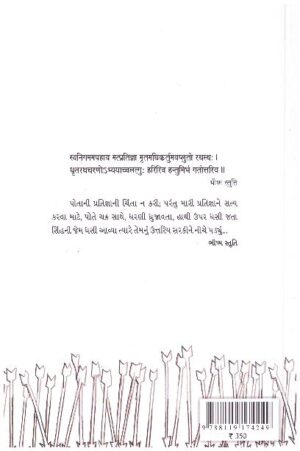 स्वनिगममपहाय मत्प्रतिज्ञा मृतमधिकर्तुमवप्लुतो रथस्थः ।
धृतरथचरणोऽभ्ययाच्चलत्गुः हरिरिव हन्तुमिभं गतोत्तरिय ॥
भीष्म स्तुति
પોતાની પ્રતિજ્ઞાની ચિંતા ન કરી; પરંતુ મારી પ્રતિજ્ઞાને સત્ય
કરવા માટે, પોતે ચક્ર સાથે, ધરણી ધ્રુજાવતા, હાથી ઉપર ધસી જતા
સિંહની જેમ ધસી આવ્યા ત્યારે તેમનું ઉત્તરિય સરકીને નીચે પડ્યું...
ભીષ્મ સ્તુતિ
9 788119 174249
₹ 350